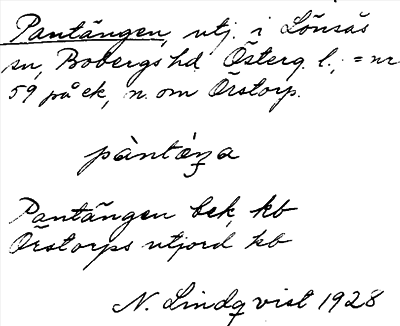 Pantängen, utj. i Lönsås
sn, Bobergs hd. Österg. l., = nr
59 på ek, n. om Örstorp.
pàntæ̀ŋa
Pantängen bek, kb
Örstorps utjord kb
N. Lindqvist 1928